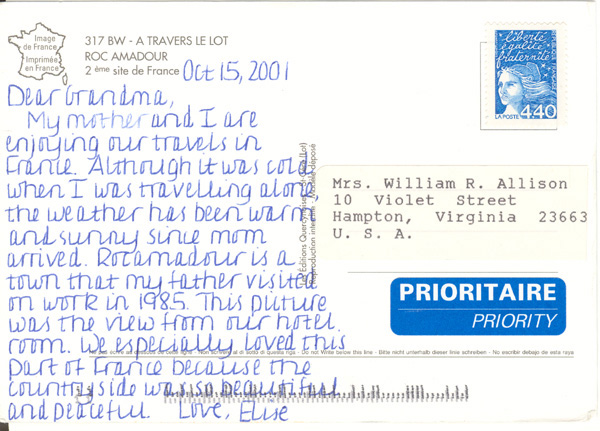 Image
de France
Imprimée
en France
317 BW - A TRAVERS LE LOT
ROC AMADOUR
2 ème site de France
Oct 15, 2001
Dear Grandma,
My mother and I are
enjoying our travels in
France. Although it was cold
when I was travelling alone,
the weather has been warm
and sunny since mom
arrived. Rocamadour is a
town that my father visited
on work in 1985. This picture
was the view from our hotel
room. We especially loved this
part of France because the
countryside was so beautiful
and peaceful. Love, Elise
liberté
égalité
fraternité
RÉPUBLIQUE FRANÇAISE
LA POSTE
4,40
Mrs. William R. Allison
10 Violet Street
Hampton, Virginia 23663
U. S. A.
PRIORITAIRE
PRIORITY
Ne pas écrire au-dessous de cette ligne - Non scrivere al di sotto di questa riga - Do not Write below this line - Bitte nicht unterhalb dieser linie schreiben - No escribir debajo de esta raya